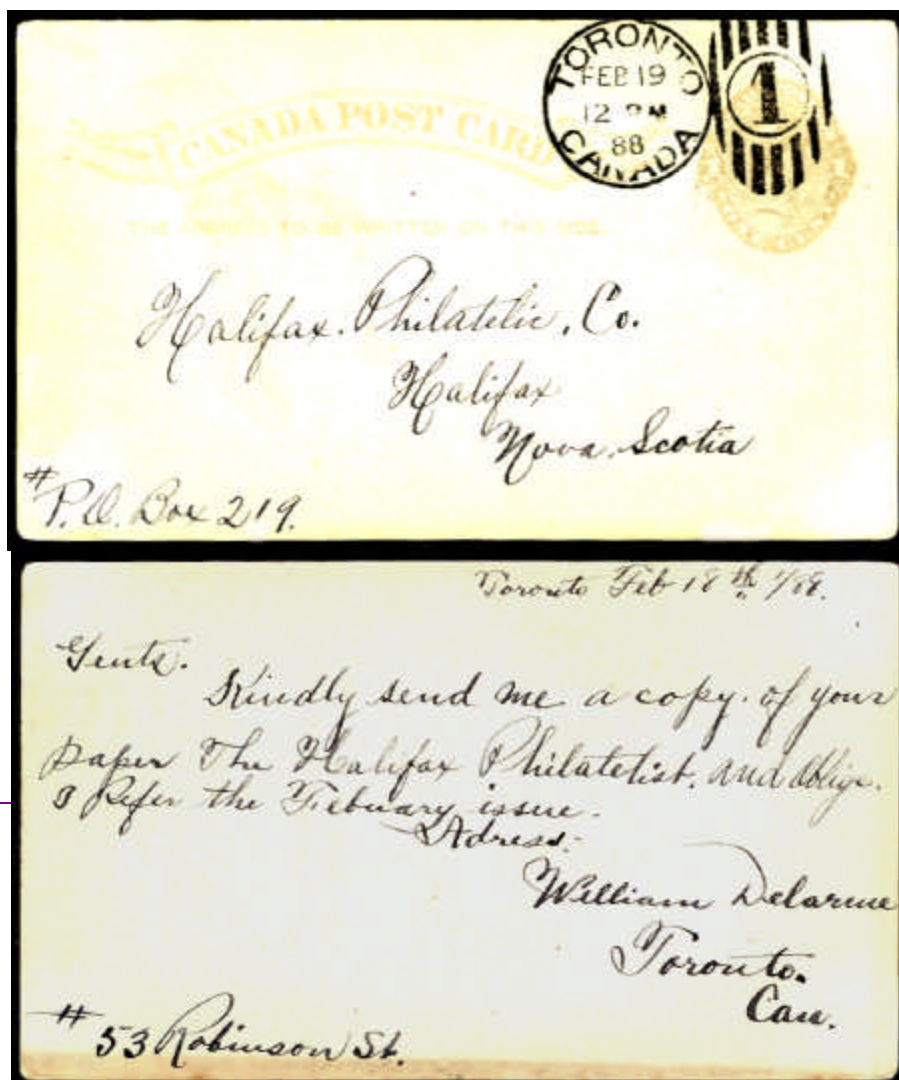 TORONTO
FEB 19
12 PM
88
CANADA
1
CANADA POST CARD
THE ADDRESS TO BE WRITTEN ON THIS SIDE
Halifax. Philatelic. Co.
Halifax
Nova. Scotia
# P.O. Box 219.
Toronto Feb 18th /88.
Gents.
Kindly send me a copy. of your
paper The Halifax Philatelist. and oblige.
I Refer the Febuary issue.
Adress:-
William Delarme
Toronto.
Can.
# 53 Robinson St.